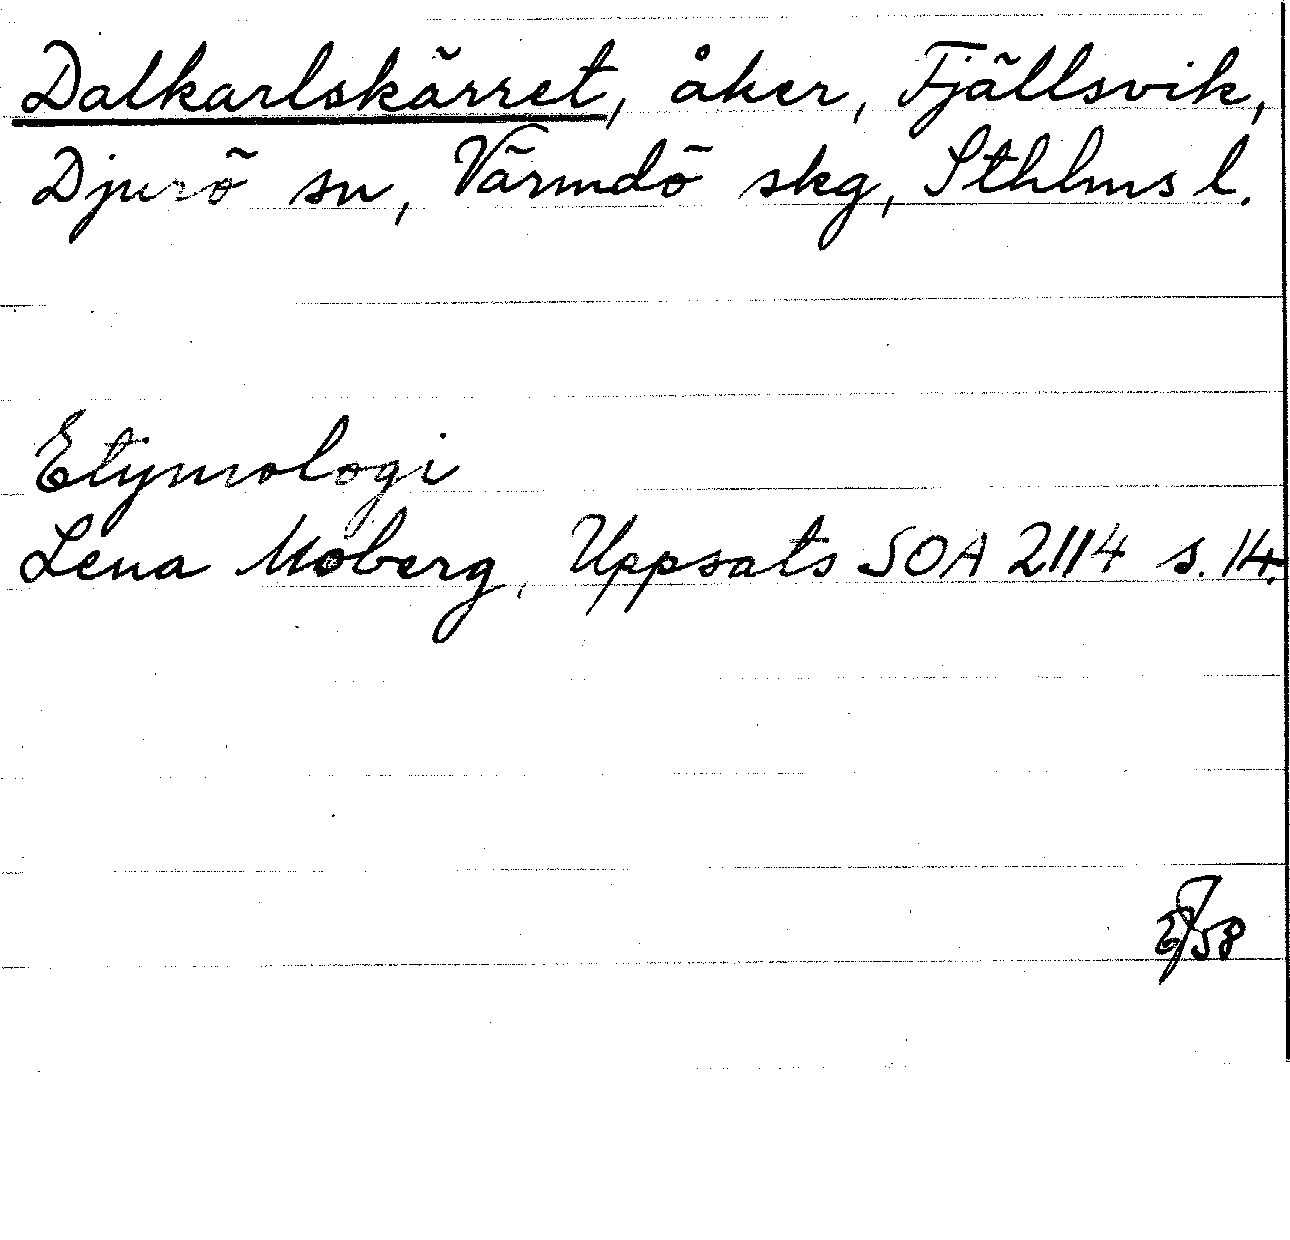 Dalkarlskärret, åker, Fjällsvik,
Djurö sn, Värmdö skg, Sthlms l.
Etymologi
Lena Moberg, Uppsats SOA 2114 s. 14.